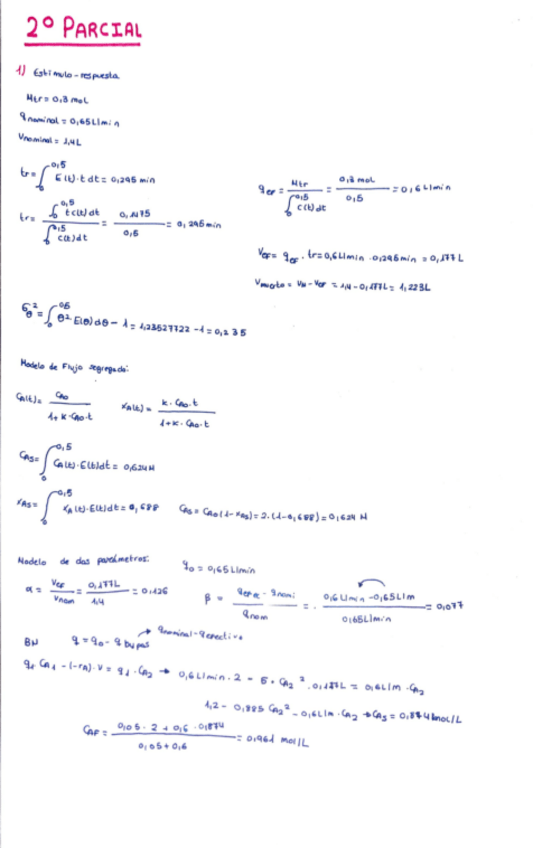 2º PARCIAL
1) Estimulo-respuesta
Ntr = 0,3 mol
q nominal = 0,65 L/min
Vnominal = 1,4L
tr = ∫₀^0,5 E(t)·t dt = 0,295 min
tr = ∫₀^0,5 t C(t) dt / ∫₀^0,5 C(t) dt = 0,1475 / 0,5 = 0,295 min
qef = Ntr / ∫₀^0,5 C(t) dt = 0,3 mol / 0,5 = 0,6 L/min
Vef = qef · tr = 0,6 L/min · 0,295 min = 0,177 L
Vmuerto = VN - Vef = 1,4 - 0,177L = 1,223L
σθ² = ∫₀^0,5 θ² E(θ) dθ - 1 = 1,23527722 - 1 = 0,235
Modelo de Flujo segregado:
CA(t) = CA0 / 1 + K·CA0·t xA(t) = K·CA0·t / 1 + K·CA0·t
CAS = ∫₀^0,5 CA(t)·E(t) dt = 0,624 M
xAS = ∫₀^0,5 xA(t)·E(t) dt = 0,688 CAS = CA0 (1 - xAS) = 2·(1 - 0,688) = 0,624 M
Modelo de dos parámetros: q0 = 0,65 L/min
α = Vef / Vnom = 0,177L / 1,4 = 0,126 β = - qnom / qnom = 0,6 L/min - 0,65 L/m / 0,65 L/min = 0,077
BM q = q0 - q bypass → qnominal - qefectivo
q1 CA1 - (-rA)·V = q1·CA2 → 0,6 L/min · 2 - 5 · CA2² · 0,177L = 0,6 L/m · CA2
1,2 - 0,885 CA2² - 0,6 L/m · CA2 → CAS = 0,874 mol/L
CAF = 0,05 · 2 + 0,6 · 0,874 / 0,05 + 0,6 = 0,961 mol/L